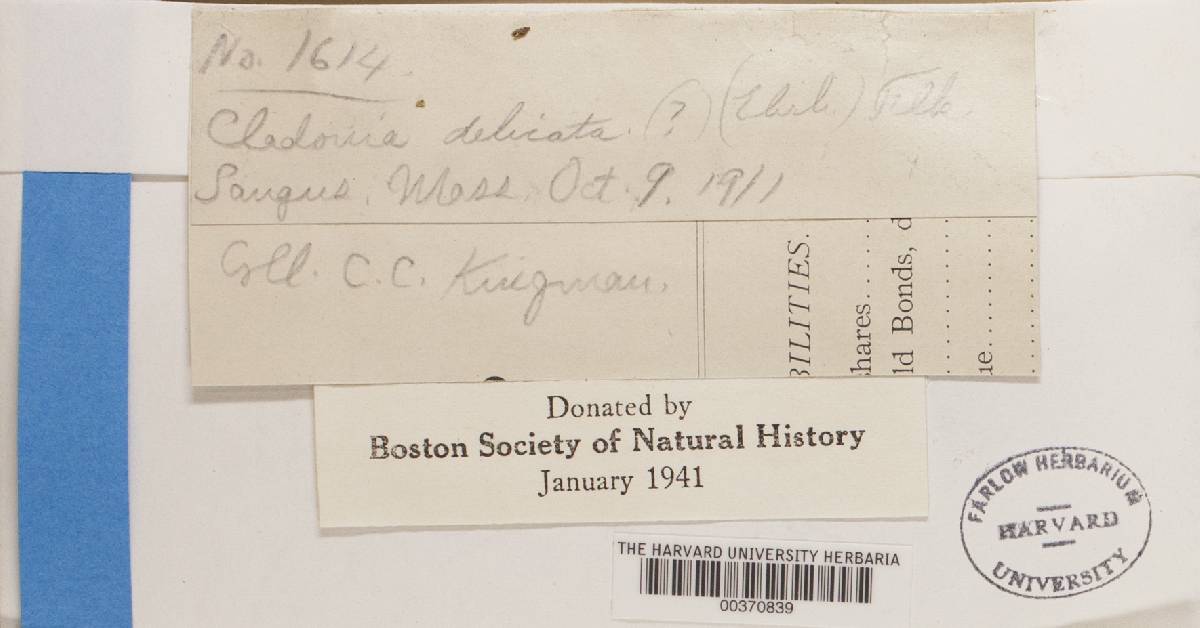 No. 1614.
Cladonia delicata. (?) (Ehrh.) Flk.
Saugus, Mass. Oct. 9. 1911
Coll. C.C. Kingman.
BILITIES.
hares......
ld Bonds, d
ue..........
Donated by
Boston Society of Natural History
January 1941
FARLOW HERBARIUM
HARVARD
UNIVERSITY
THE HARVARD UNIVERSITY HERBARIA
00370839